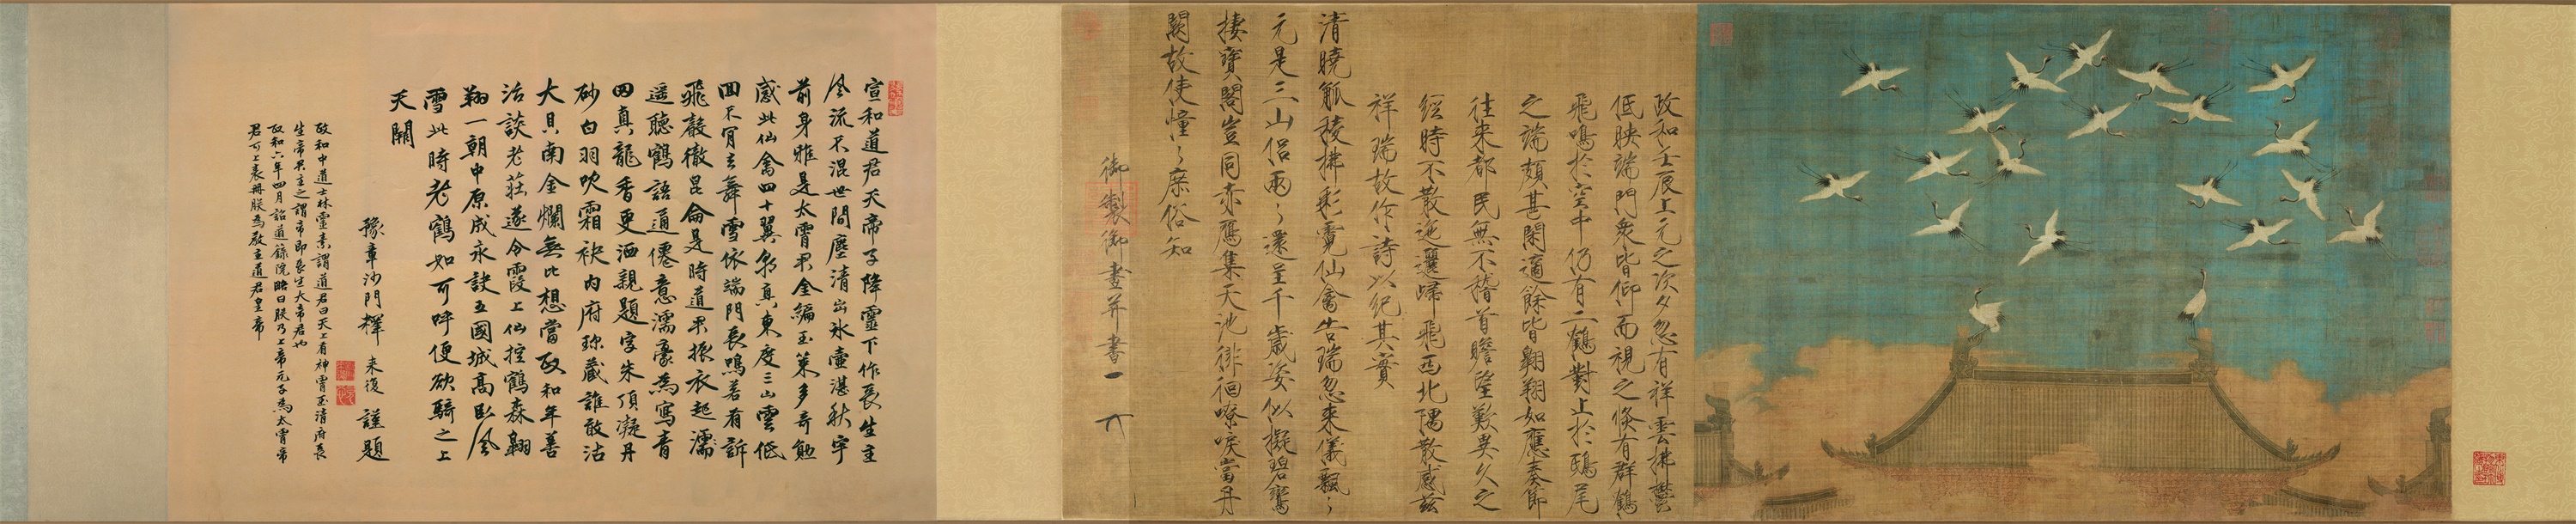 政和壬辰上元之次夕忽有祥雲拂鬱
低映端門衆皆仰而視之倏有群鶴
飛鳴於空中仍有二鶴對止於鴟尾
之端頗甚閑適餘皆翱翔如應奏節
往來都民無不稽首瞻望歎異久之
經時不散迤邐歸飛西北隅散感茲
祥瑞故作詩以紀其實
清曉觚稜拂彩霓仙禽告瑞忽來儀飄〻
元是三山侶兩〻還呈千歲姿似擬碧鸞
棲寶閣豈同赤鴈集天池徘徊嘹唳當丹
闕故使憧〻庶俗知
御製御畫并書
宣和道君天帝子降靈下作長生主
風流不混世間塵清出氷壺湛秋宇
前身雅是太霄君金編玉策多奇勳
感此仙禽四十翼朝真東度三山雲低
回不肯去舞雪依端門長鳴若有訴
飛聲徹崑侖是時道君振衣起濡
遥聽鶴語通僊意濡毫為寫青
田真龍香更洒親題字朱頂凝丹
砂白羽吹霜袂内府珍藏誰敢沽
大貝南金爛無比想當政和年善
活談老莊遂令霞上仙控鶴森翱
翔一朝中原成永訣五國城高臥風
雪此時老鶴如可呼便欲騎之上
天關
豫章沙門釋 來復 謹題
政和中道士林靈素謂道君曰天上有神霄玉清府長
生帝君主之謂帝即長生大帝君也
政和六年四月詔道籙院略曰朕乃上帝元子為太霄帝
君可上表冊朕為教主道君皇帝